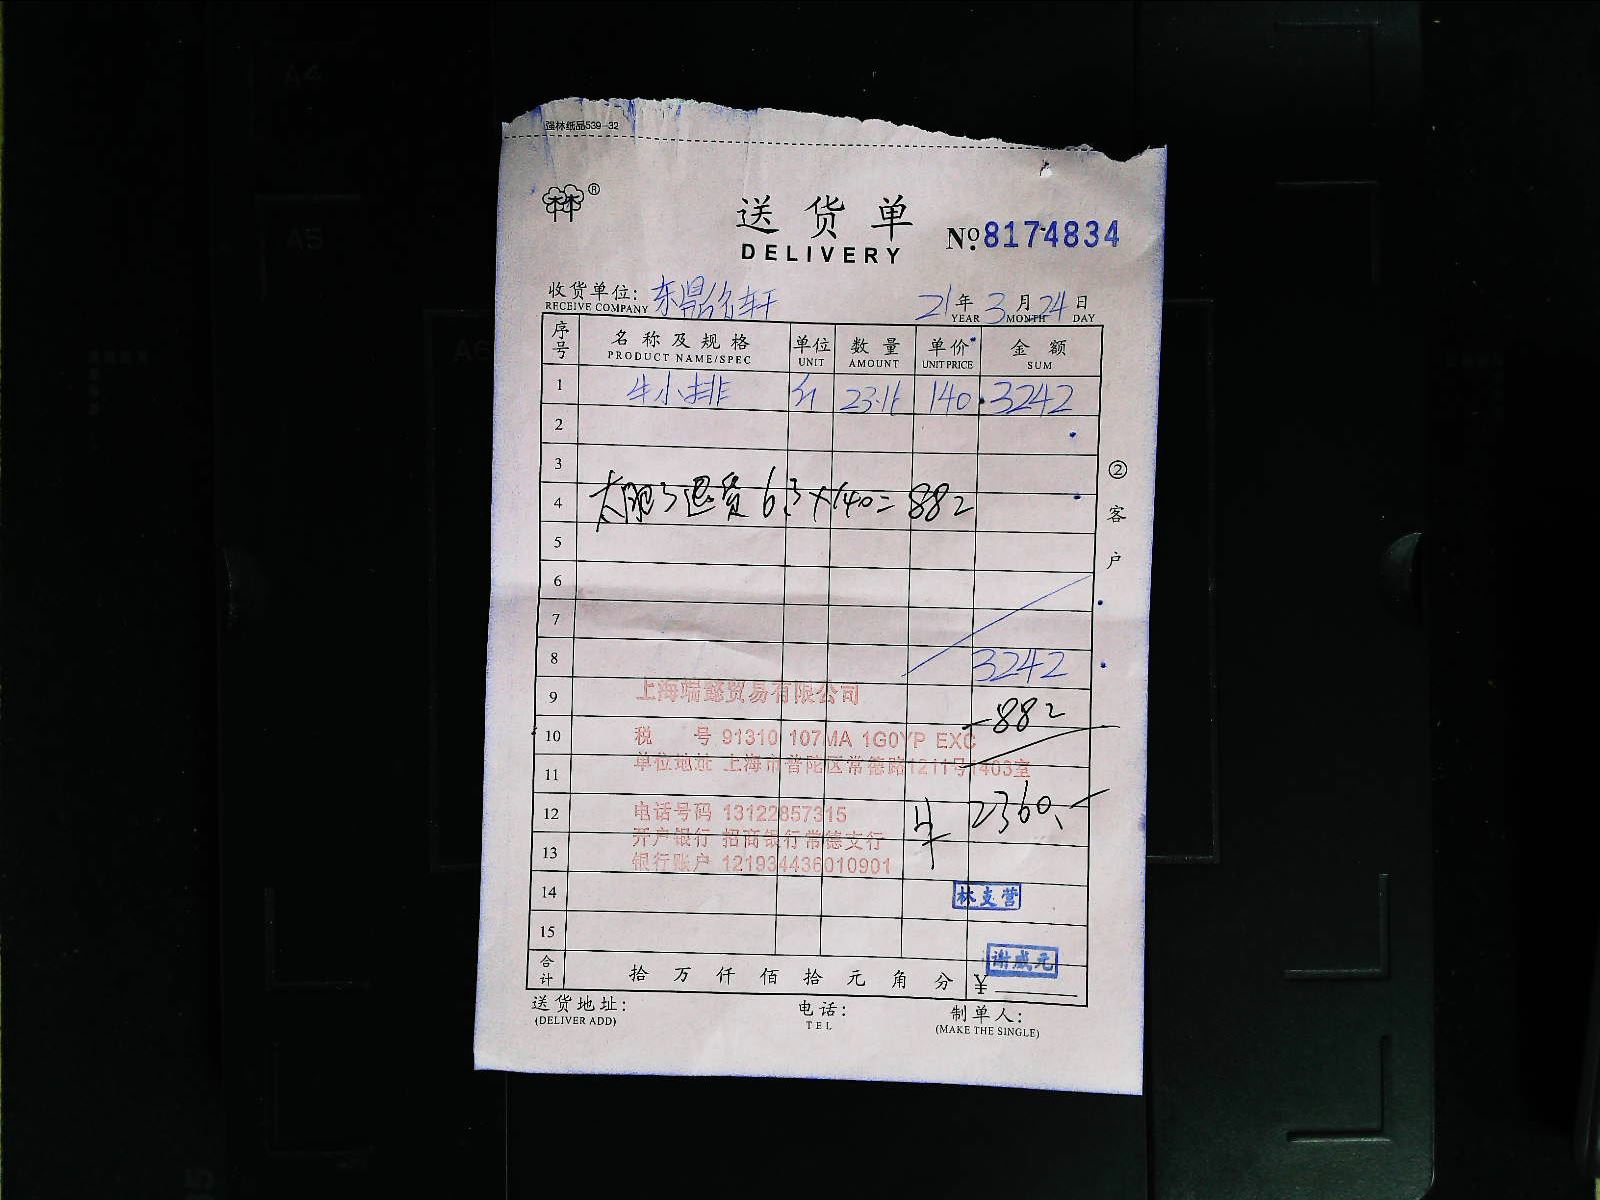 强林纸品539-32
®
送货单
DELIVERY
№8174834
收货单位:
RECEIVE COMPANY
21年3月24日
YEAR MONTH DAY
序号 名称及规格 单位 数量 单价 金额
PRODUCT NAME/SPEC UNIT AMOUNT UNIT PRICE SUM
1 牛小排 斤 23.16 140 3242
2
3
4 太肥了退货 6.3×140=882
5
6
7
8 3242
9 -882
10
11
12 2360.-
13
14
15
上海端懿贸易有限公司
税 号 91310 107MA 1G0YP EXC
单位地址 上海市普陀区常德路1211号1403室
电话号码 13122857315
开户银行 招商银行常德支行
银行账户 121934436010901
牛
林支营
谢成元
合计 拾 万 仟 佰 拾 元 角 分 ¥
送货地址: 电话: 制单人:
(DELIVER ADD) TEL (MAKE THE SINGLE)
② 客户
A4
A5
A6